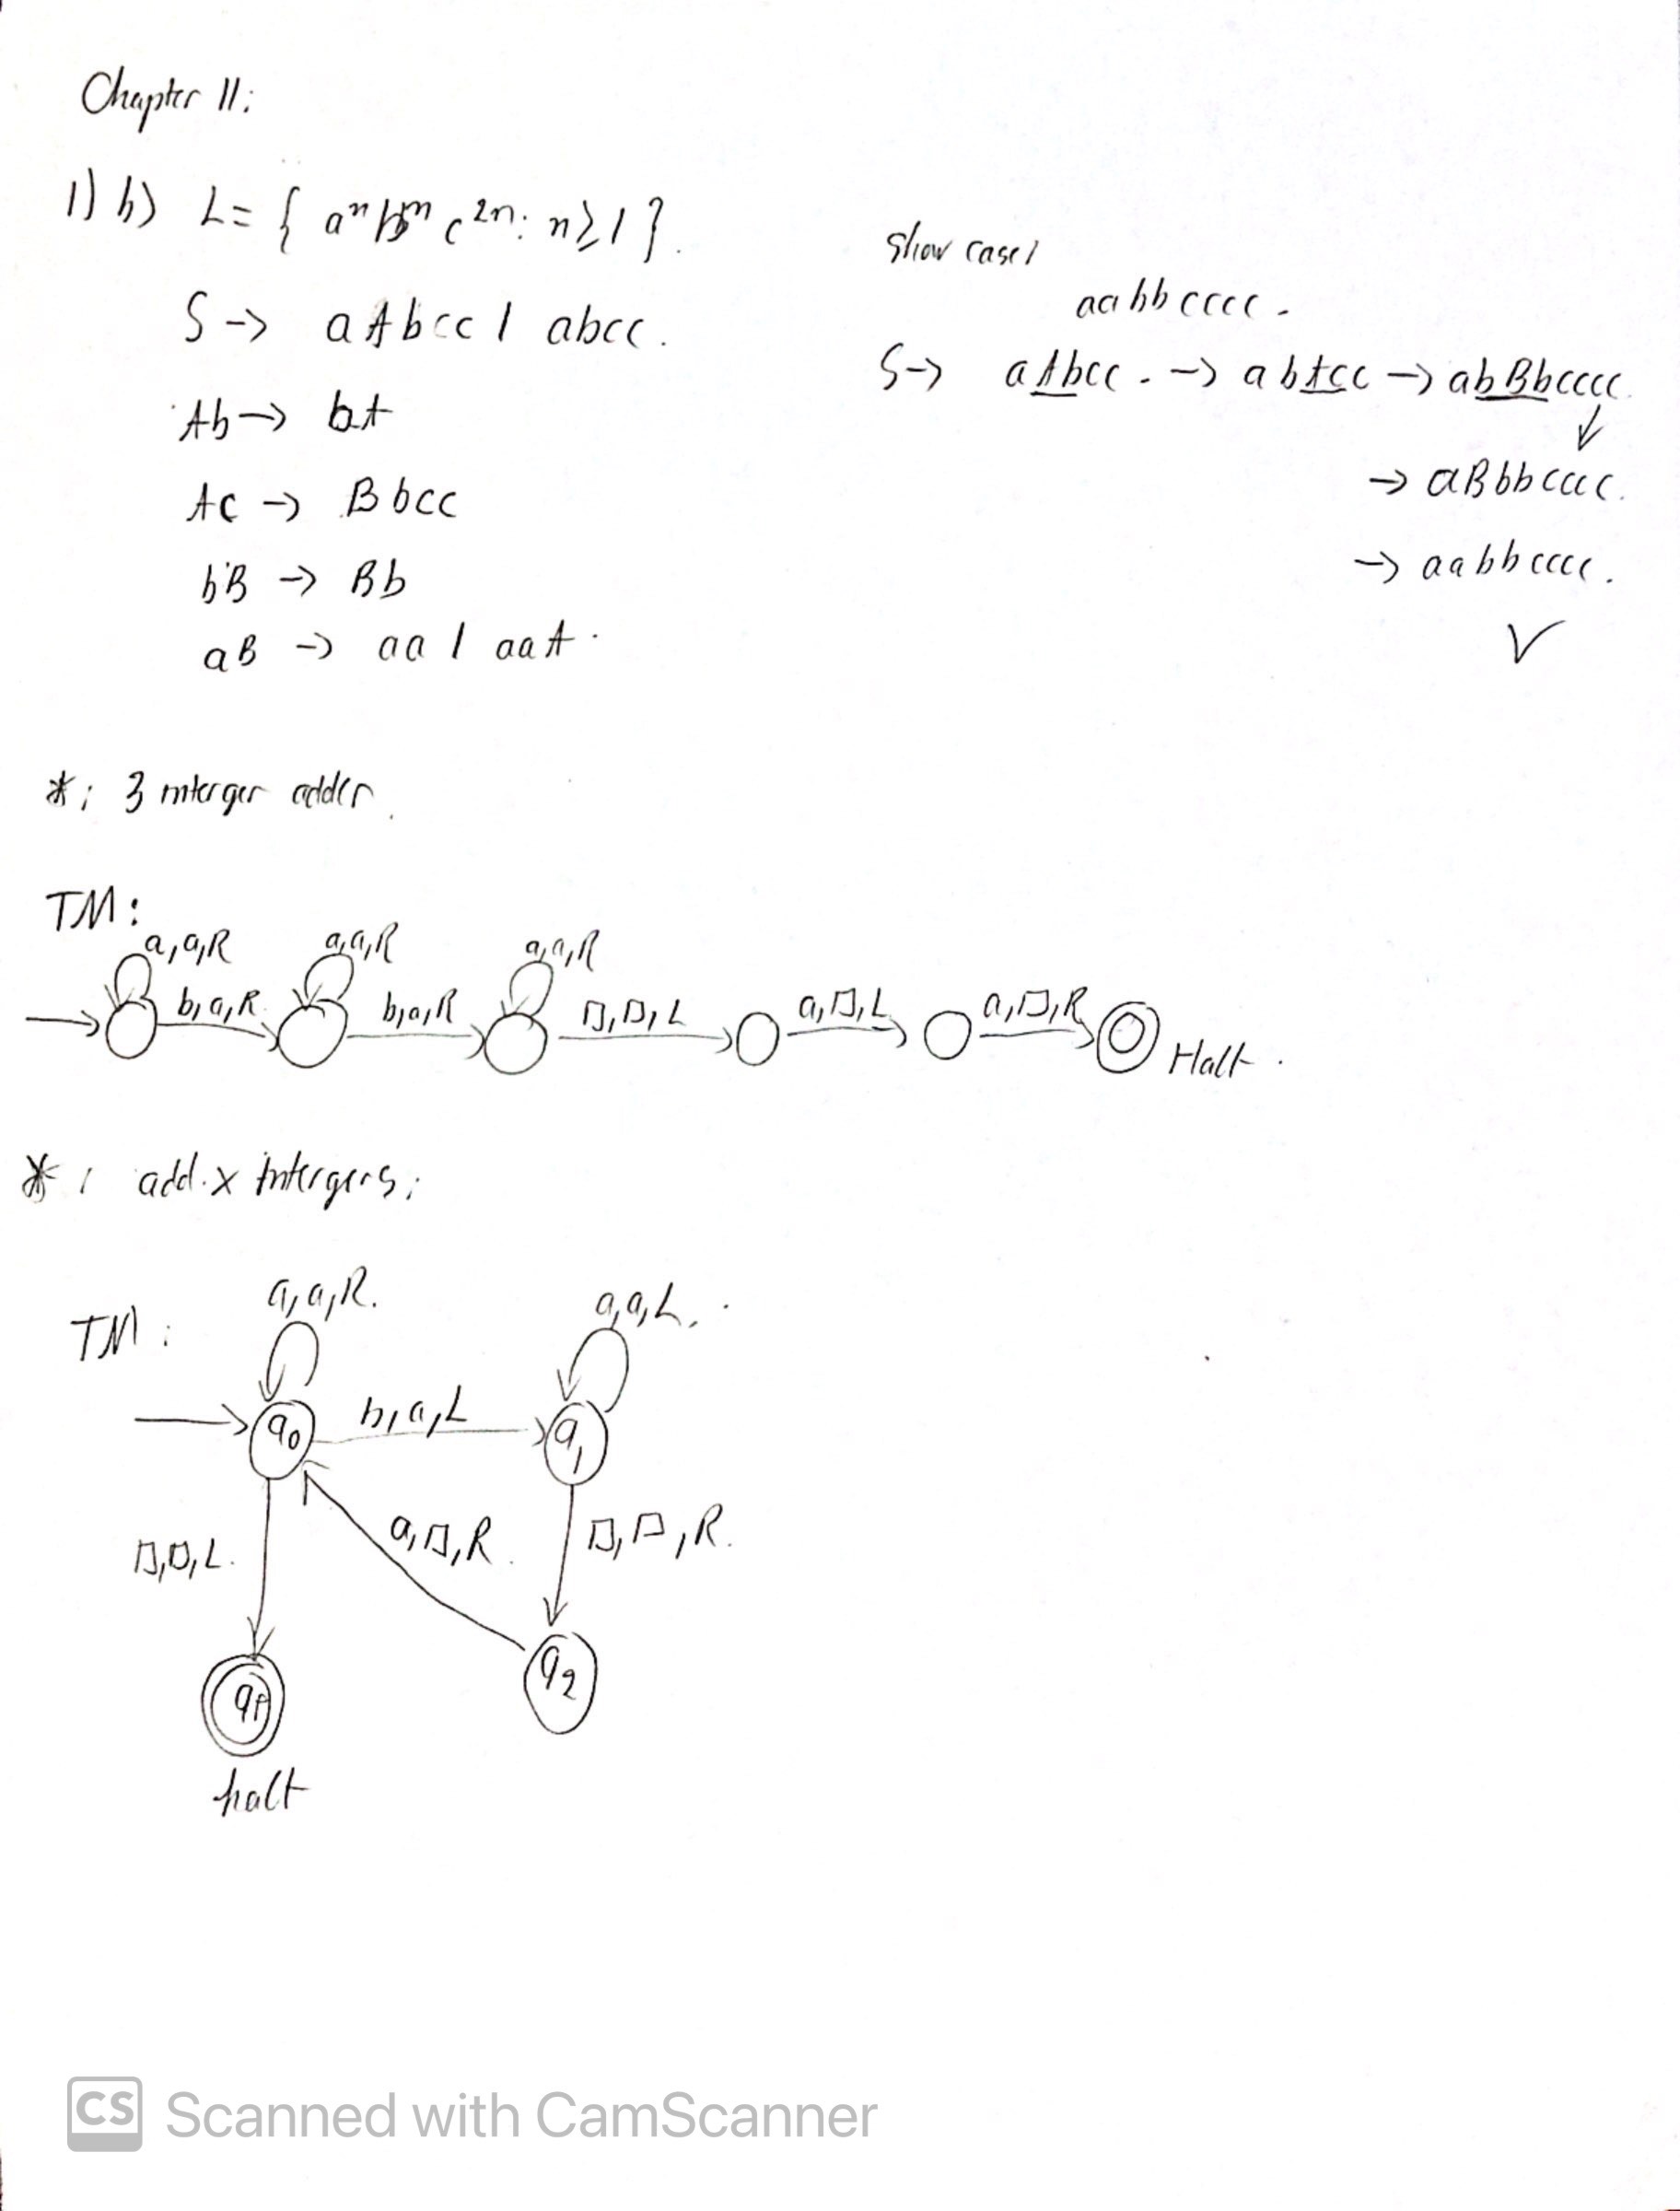 Chapter 11:
1) b) L = { aⁿ bⁿ c²ⁿ : n ≥ 1 }.
S -> aAbcc | abcc.
Ab -> bA
Ac -> Bbcc
bB -> Bb
aB -> aa | aaA.
Show case 1
aabbcccc.
S -> aAbcc. -> abAcc -> abBbcccc.
-> aBbbcccc.
-> aabbcccc.
✓
*: 3 interger adder.
TM:
a,a,R a,a,R a,a,R
b,a,R b,a,R □,□,L a,□,L a,□,R
Halt.
*: add x intergers:
TM:
a,a,R. a,a,L.
q0 b,a,L q1
□,□,L. a,□,R. □,□,R.
qf q2
halt
CS Scanned with CamScanner